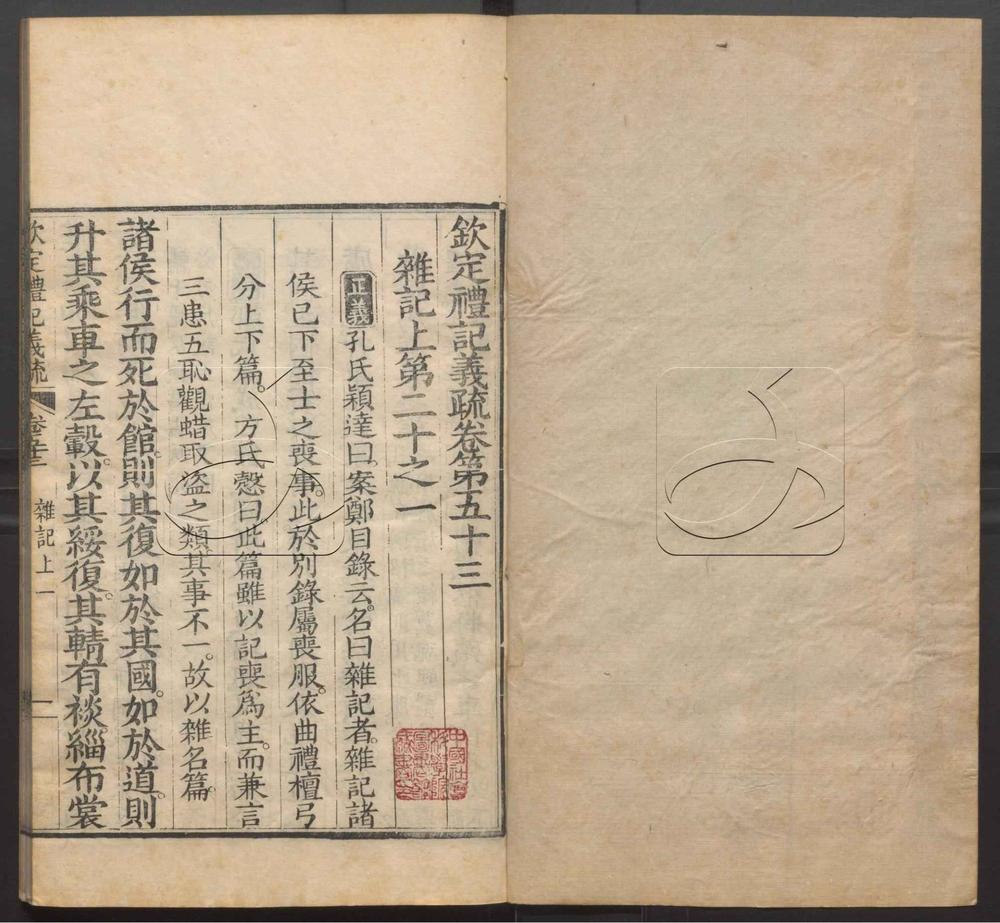 欽定禮記義疏卷第五十三
雜記上第二十之一
正義孔氏穎達曰。案鄭目錄云。名曰雜記者。雜記諸
侯已下至士之喪事。此於別錄屬喪服。依曲禮檀弓
分上下篇。方氏慤曰。此篇雖以記喪為主。而兼言
三患五恥觀蜡取盜之類。其事不一。故以雜名篇。
諸侯行而死於館。則其復如於其國。如於道。則
升其乘車之左轂。以其綏復。其輤有裧。緇布裳
欽定禮記義疏
卷五十三
雜記上
一